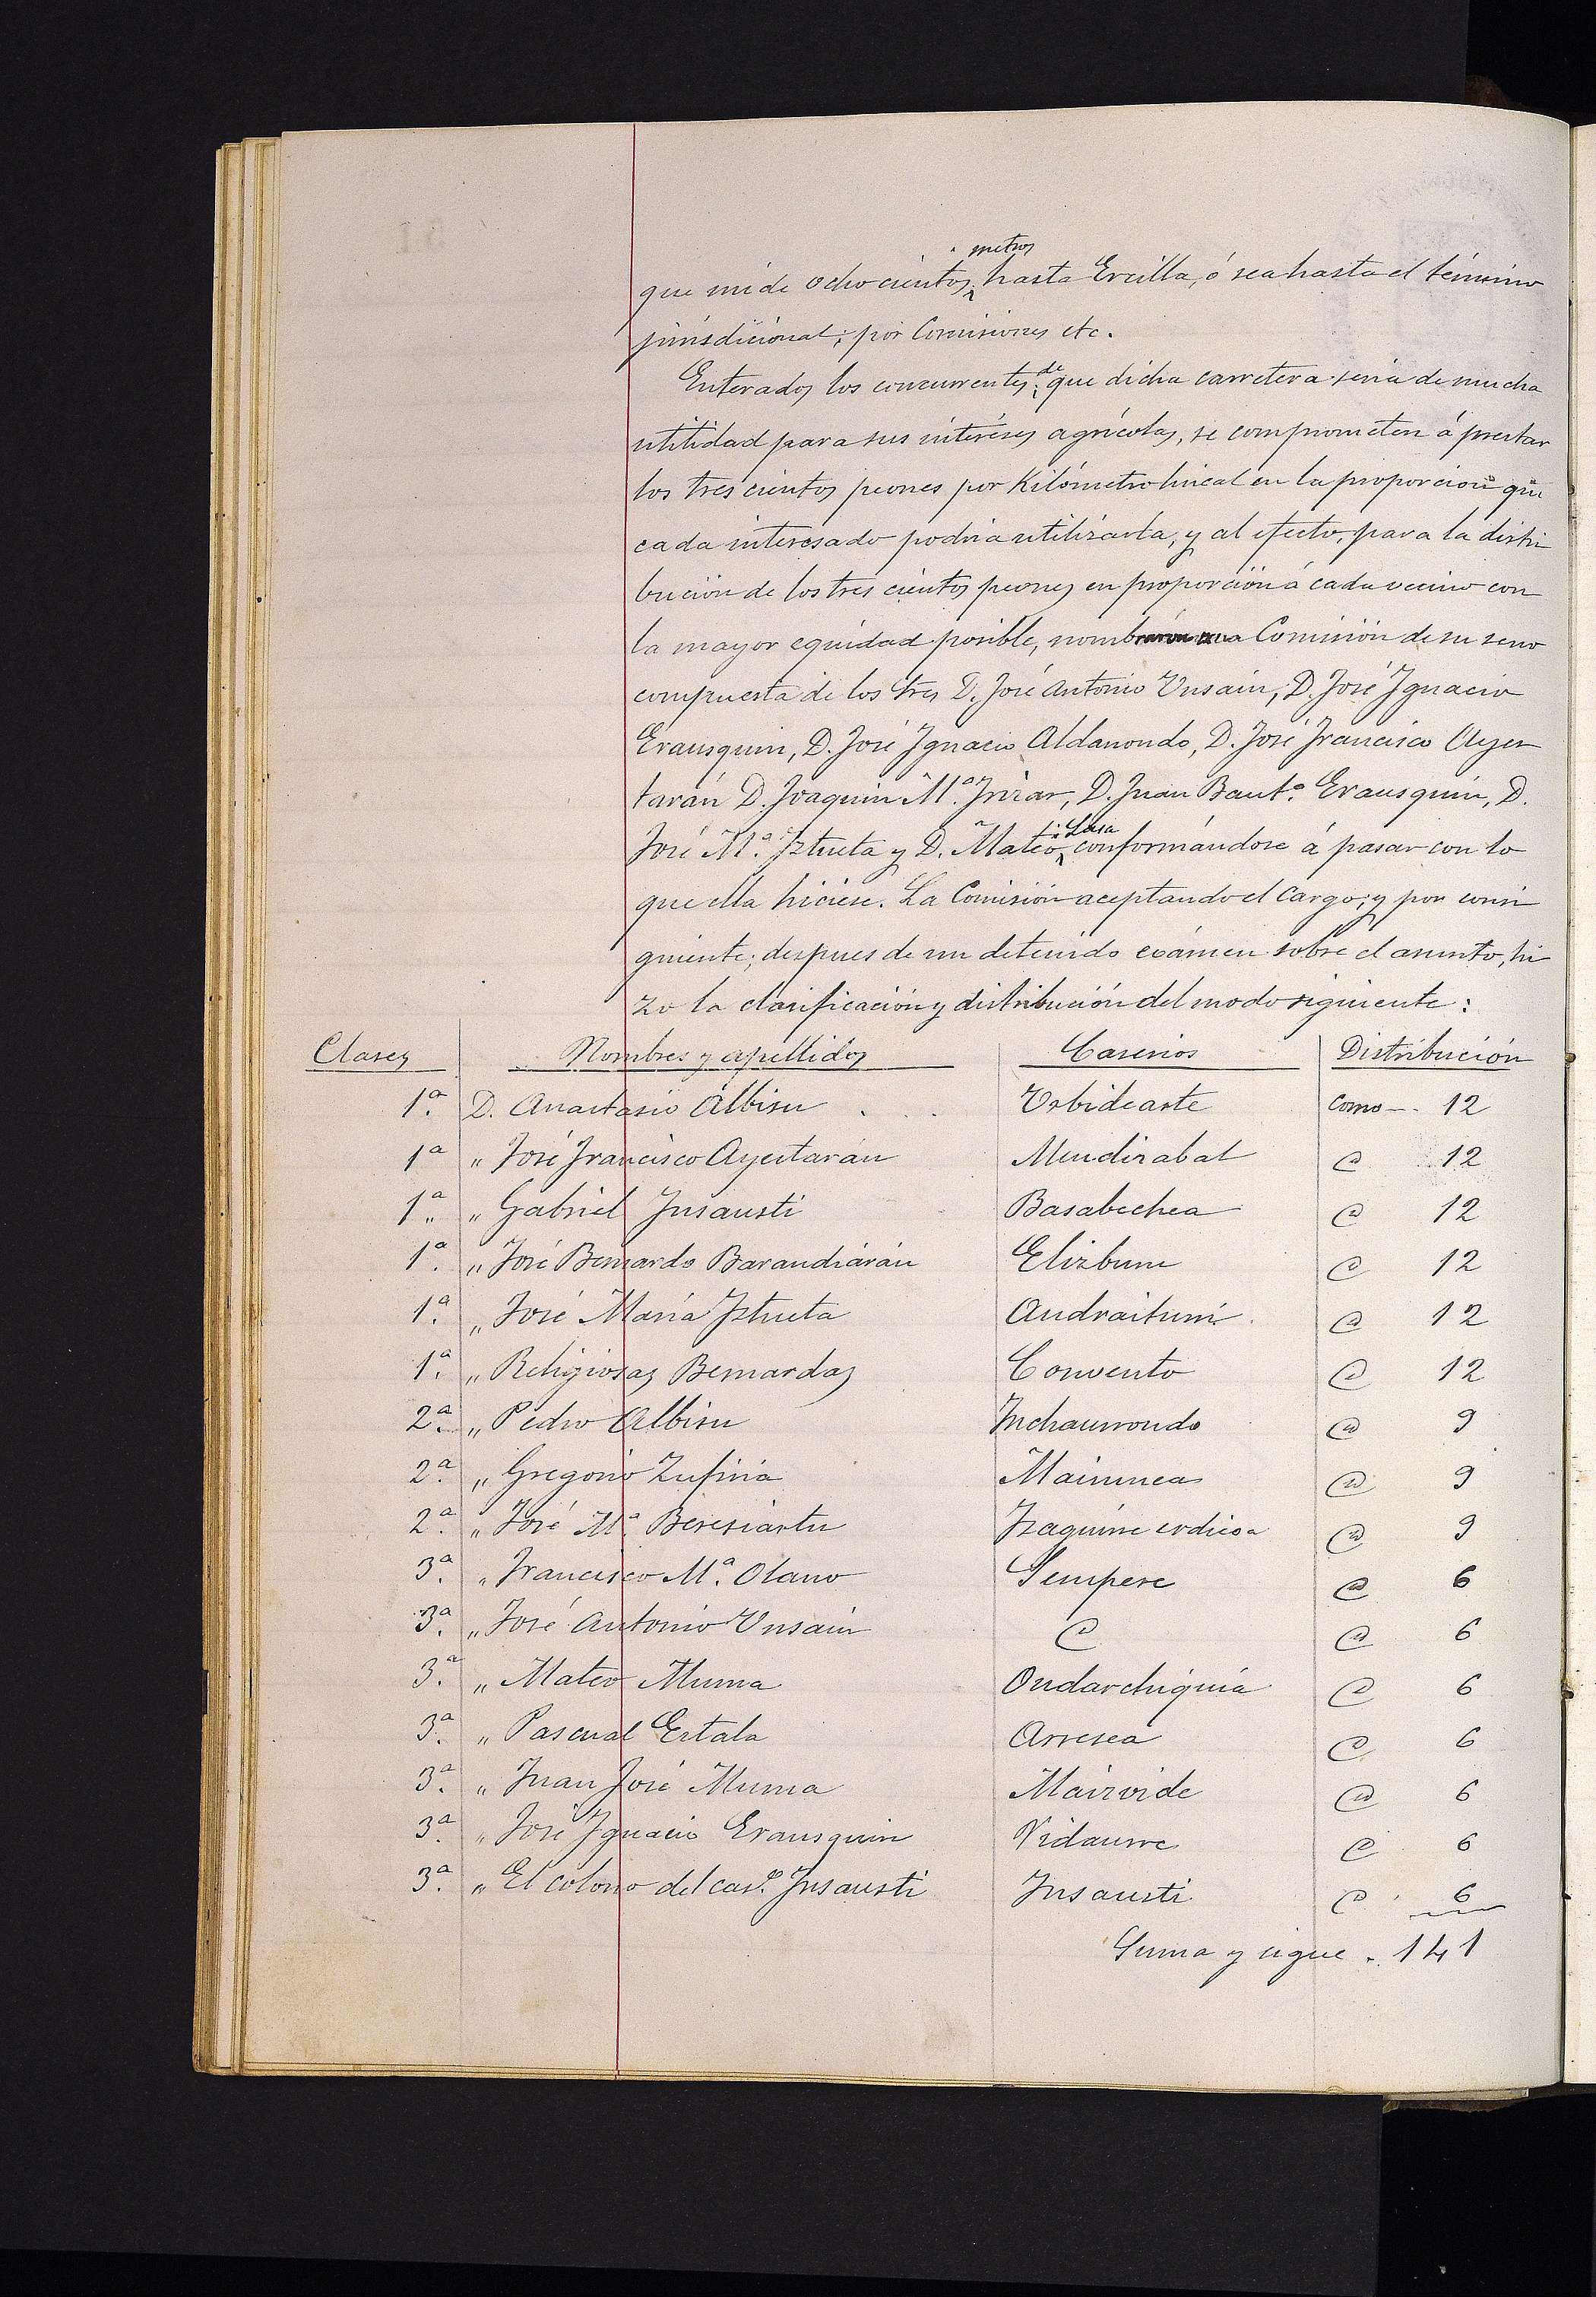 que mide ochocientos metros hasta Ercilla, ó sea hasta el término
jurisdicional; por Comisiones etc.
Enterados los concurrentes de que dicha carretera seria de mucha
utilidad para sus interéses agrícolas, se comprometen á prestar
los tres cientos peones por Kilómetro lineal en la proporcion que
cada interesado podria utilizarla, y al efecto, para la distri
bución de los tres cientos peones en proporción á cada vecino con
la mayor equidad posible, nombraron una Comisión de su seno
compuesta de los tres D. José Antonio Unsain, D. José Ignacio
Erausquin, D. José Ignacio Aldanondo, D. José Francisco Ayes
tarán D. Joaquin Mª. Irizar, D. Juan Bautª. Erausquin, D.
José Mª. Iztueta y D. Mateo Lasa conformándose á pasar con lo
que ella hiciese. La Comisión aceptando el Cargo, y por consi
guiente; despues de un detenido exámen sobre el asunto, hi
zo la clasificación y distribución del modo siguiente:
Clases Nombres y apellidos Caserios Distribución
1ª. D. Anastasio Albisu . . . Urbidearte como -. 12
1ª " José Francisco Ayestarán Mendizabal @ 12
1ª. " Gabriel Insausti Basabechea @ 12
1ª. " José Bernardo Barandiárán Elizburu @ 12
1ª. " José María Iztueta Andraiturri @ 12
1ª. " Religiosas Bernardas Convento @ 12
2ª. " Pedro Albisu Inchaurrondo @ 9
2ª. " Gregorio Zufiria Mairunea @ 9
2ª. " José Mª. Beresiartu Izaguirre erdicoa @ 9
3ª. " Francisco Mª. Olano Sempere @ 6
3ª. " José Antonio Unsain @ @ 6
3ª. " Mateo Murua Ondarchiquia @ 6
3ª. " Pascual Estala Arresea @ 6
3ª. " Juan José Murua Mairvide @ 6
3ª. " José Ignacio Erausquin Vidaurre @ 6
3ª. " El colono del casº. Insausti Insausti @ 6
Suma y sigue . 141